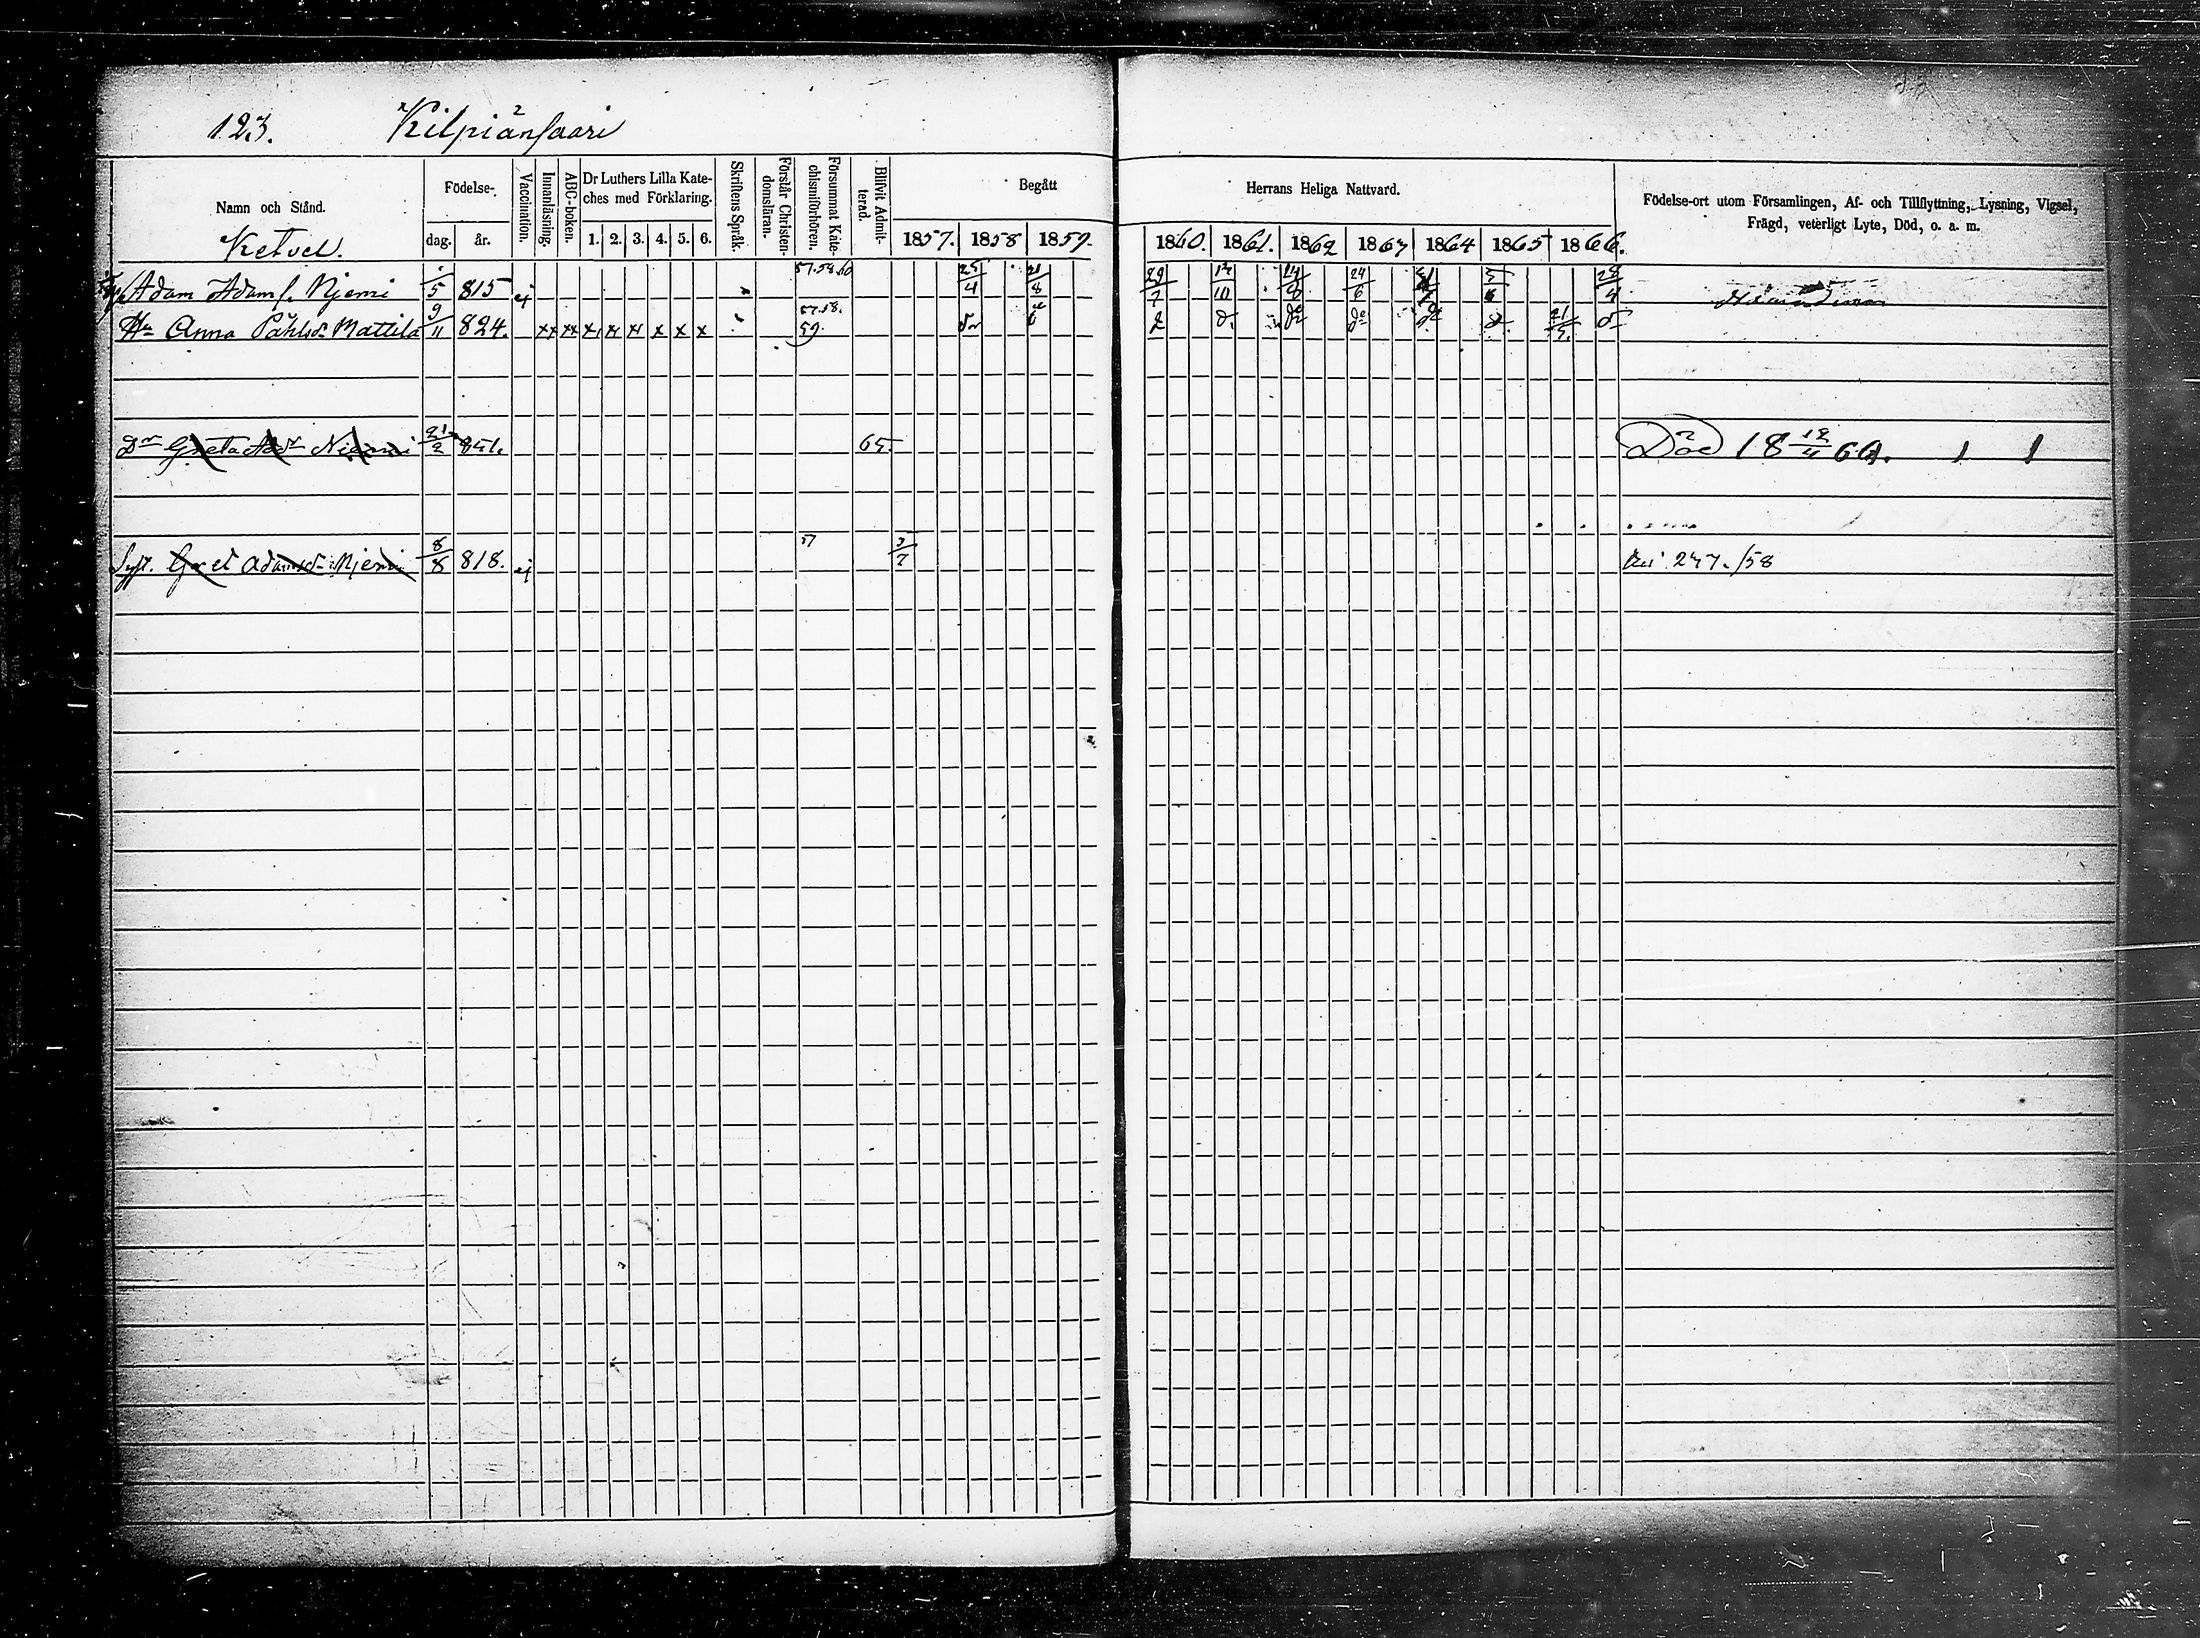 123. Kilpiänsaari
Namn och Stånd.
Ketvel.
Födelse-
dag. år.
Vaccination.
Innanläsning.
ABC-boken.
Dr Luthers Lilla Kate-
ches med Förklaring.
1. 2. 3. 4. 5. 6.
Skriftens Språk.
Förstår Christen-
domsläran.
Försummat Kate-
chismiförhören.
Blifvit Admit-
terad.
Begått
1857. 1858 1859.
Herrans Heliga Nattvard.
1860. 1861. 1862 1863 1864 1865 1866.
Födelse-ort utom Församlingen, Af- och Tillflyttning, Lysning, Vigsel,
Frägd, veterligt Lyte, Död, o. a. m.
Adam Adamss. Njemi /5 815 ej 57.58.60 25/4 21/8 29/7 24/6 28/4
Hu Anna Påhlsdr Mattila 9/11 824. xx xx x x x x x x 57.58. 59.
Dr Greta Addr Niemi 21/2 851. 65. Död 18 12/4 66. 1 1
Syst. Gret Adamsdr Njemi 8/8 818. ej 57 3/7 247./58